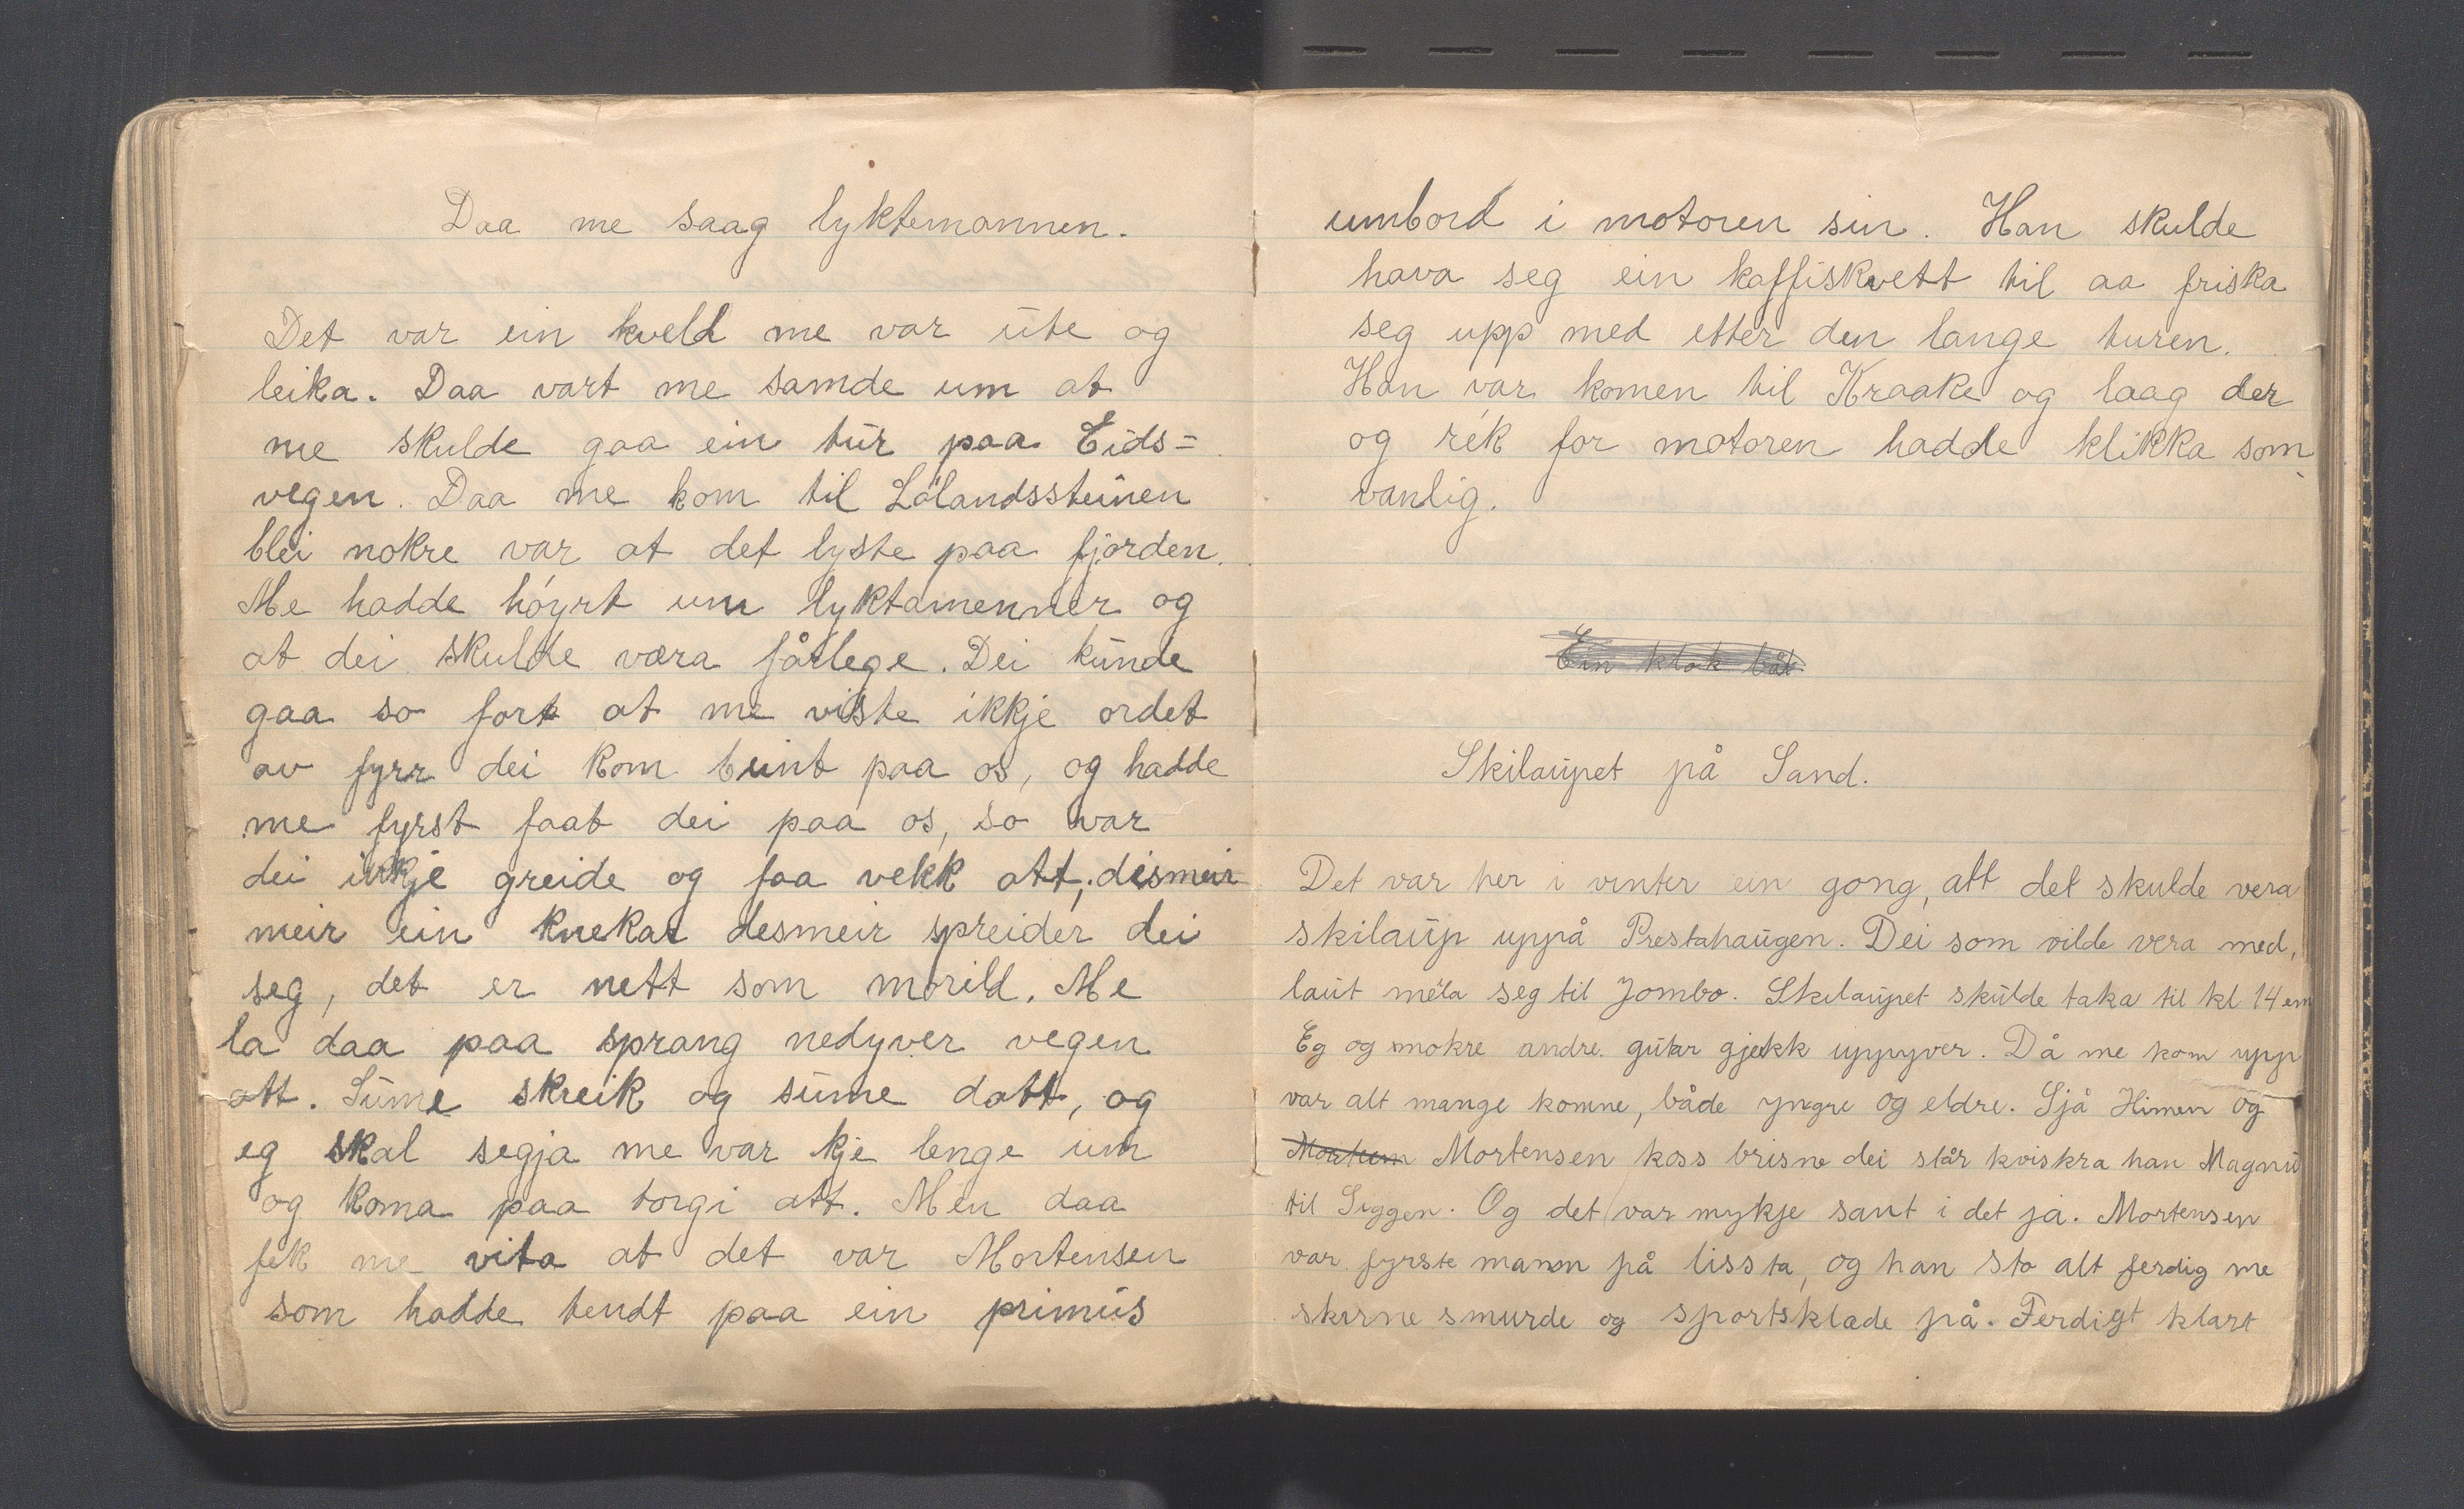 Daa me saag lyktemannen.
Det var ein kveld me var ute og
leika. Daa vart me samde um at
me skulde gaa ein tur paa Eids=
vegen. Daa me kom til Lølandssteinen
blei nokre var at det lyste paa fjorden.
Me hadde høyrt um lyktamenner og
at dei skulde væra fårlege. Dei kunde
gaa so fort at me viste ikkje ordet
av fyrr dei kom beint paa os, og hadde
me fyrst faat dei paa os, so var
dei ikkje greide og faa vekk att, dismeir
meir ein knekar desmeir spreider dei
seg, det er nett som morild. Me
la daa paa sprang nedyver vegen
att. Sume skreik og sume datt, og
eg skal segja me var kje lenge um
og koma paa torgi att. Men daa
fek me vita at det var Mortensen
som hadde tendt paa ein primus
umbord i motoren sin. Han skulde
hava seg ein kaffiskvett til aa friska
seg upp med etter den lange turen.
Han var komen til Kraake og laag der
og rék for motoren hadde klikka som
vanlig.
Ein klok båt.
Skilaupet på Sand.
Det var her i vinter ein gong, att det skulde vera
skilaup uppå Prestahaugen. Dei som vilde vera med,
laut mela seg til Jombo. Skilaupet skulde taka til kl 14 em
Eg og nokre andre gutar gjekk uppyver. Då me kom upp
var alt mange komne, både yngre og eldre. Sjå Himen og
Mortem Mortensen koss brisne dei står kviskra han Magnu
til Siggen. Og det var mykje sant i det ja. Mortensen
var fyrste mann på lissta, og han sto alt ferdig me
skirne smurde og sportsklæde på. Ferdigt klart